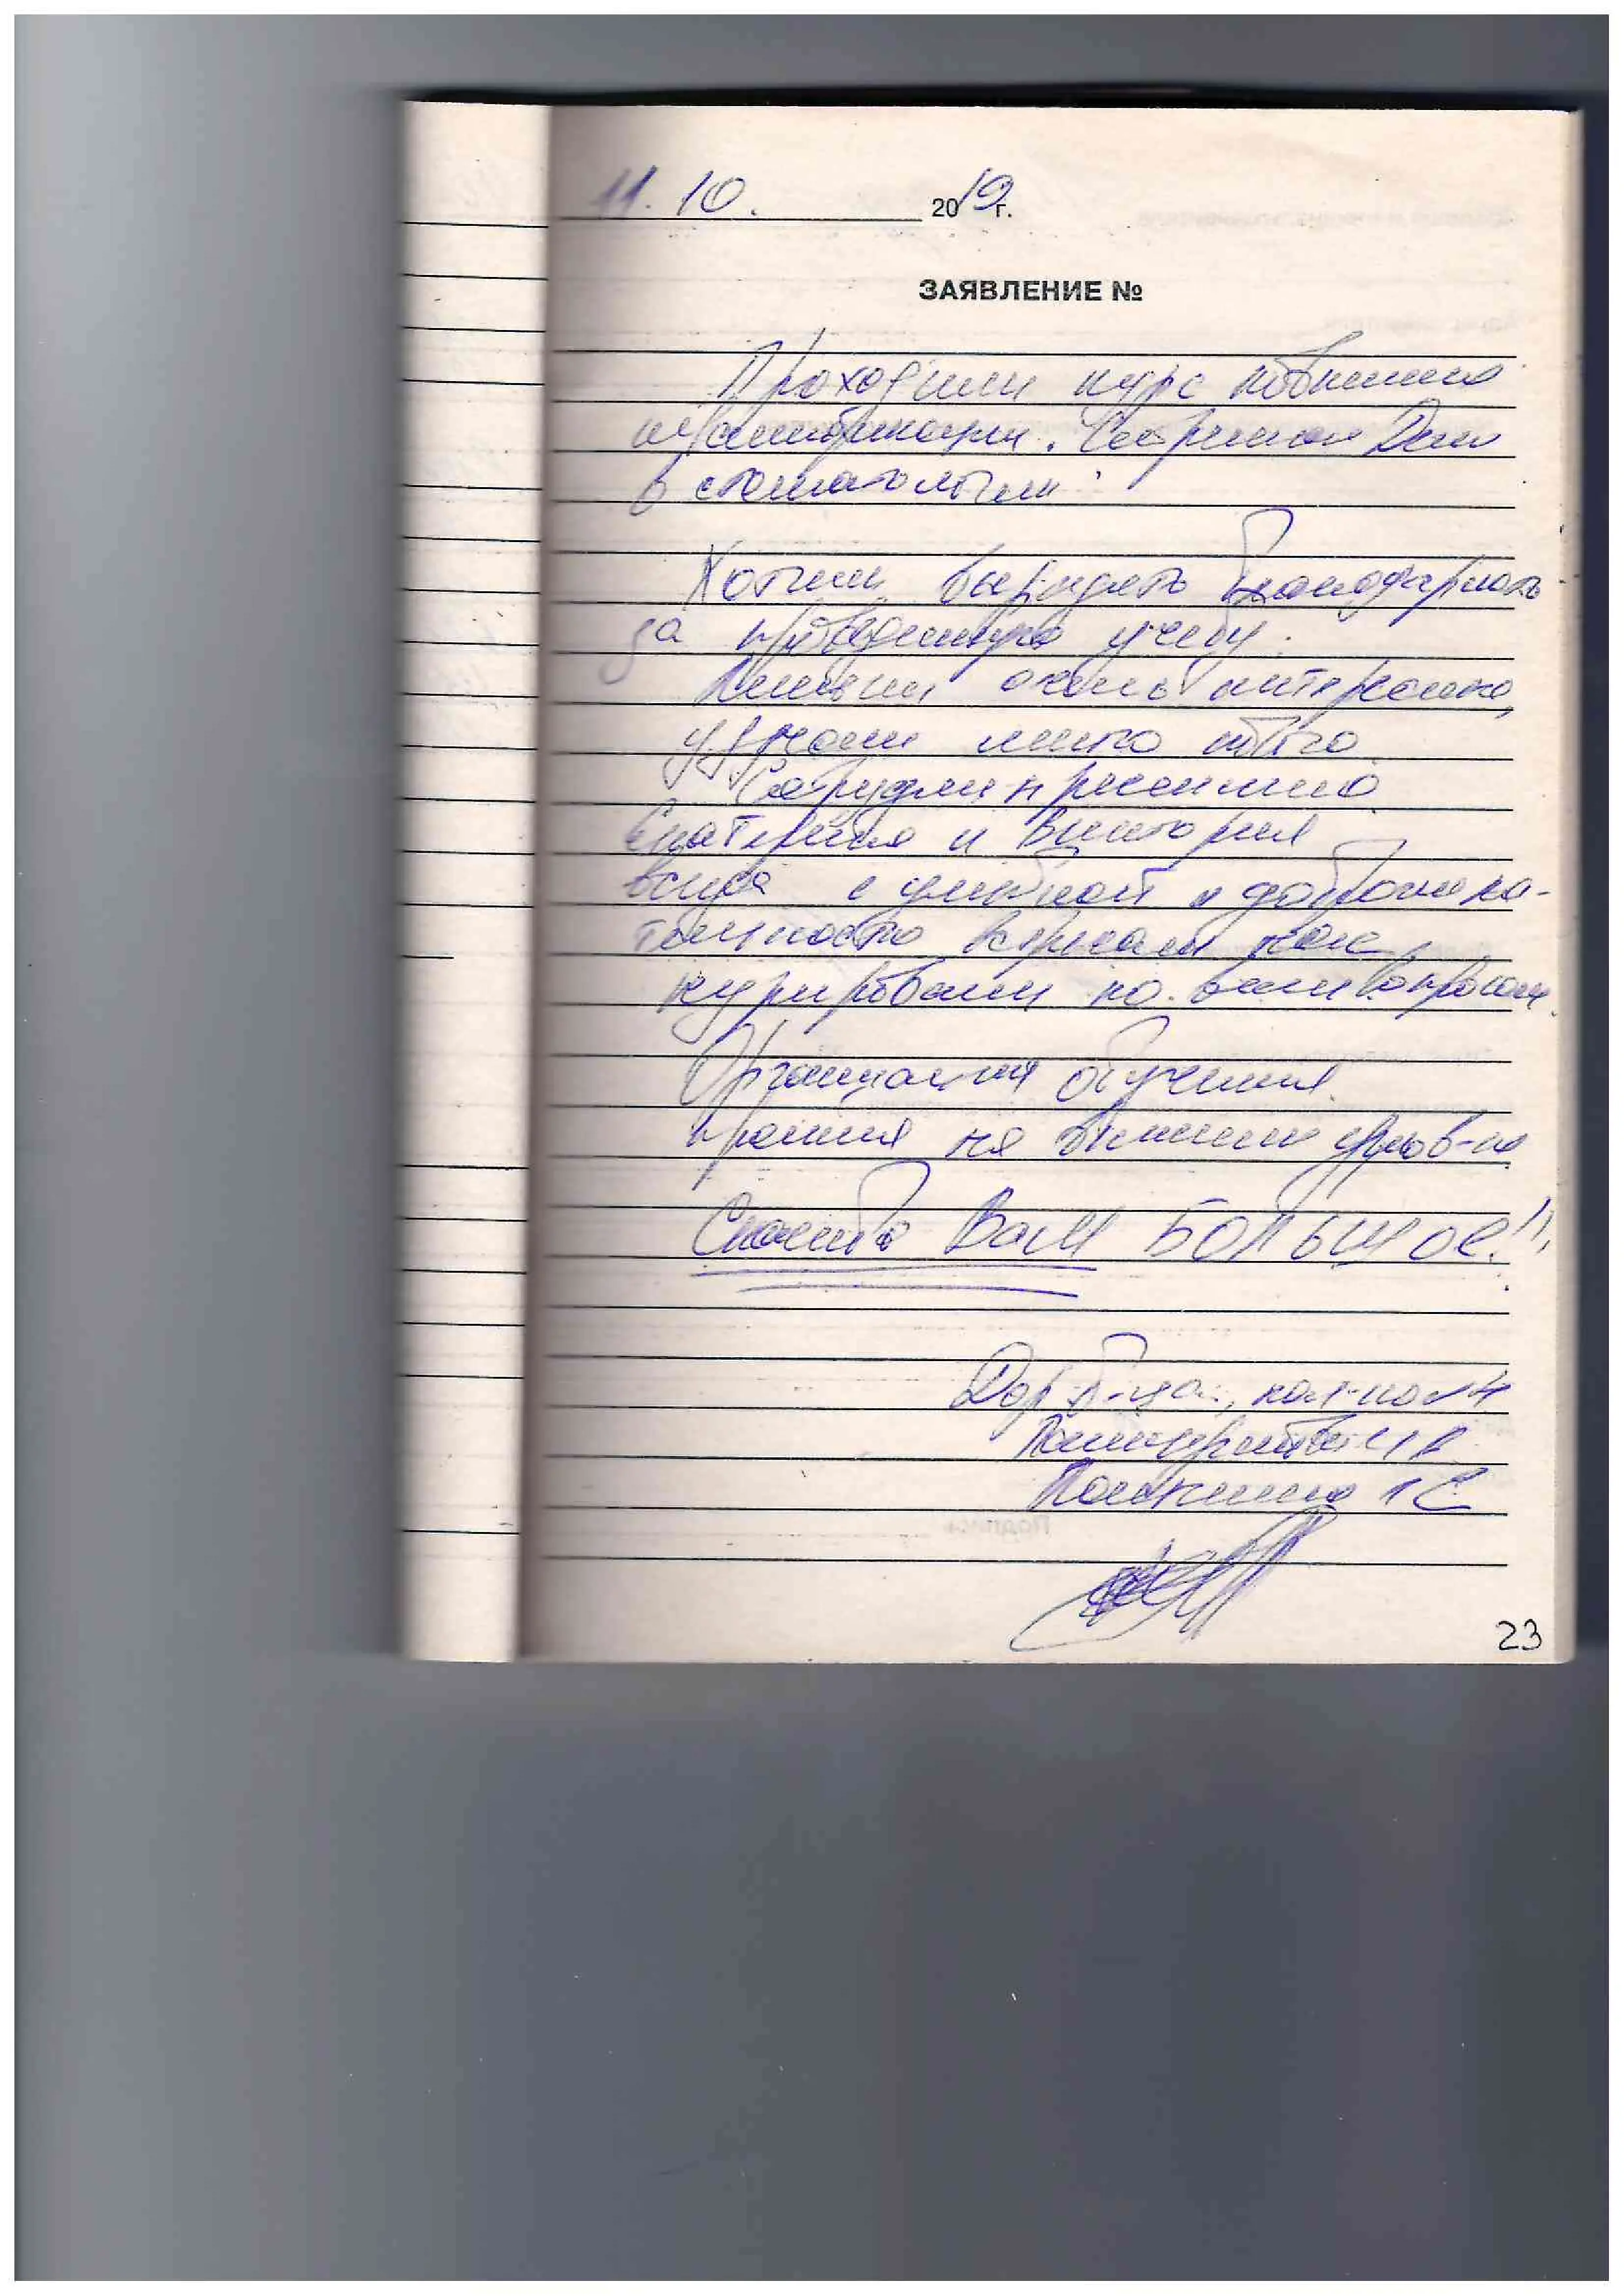 11.10. 2019г.
ЗАЯВЛЕНИЕ №
Проходили курс повышения
квалификации. Сестринское Дело
в стоматологии.
Хотим выразить благодарность
за проведенную учебу.
Лекции очень интересно,
узнали много нового
Сотрудники
Екатерина и Виктория
всегда с улыбкой и доброжела-
тельностью встречали нас,
курировали по всем вопросам.
Организация обучения
прошла на высшем уров-не
Спасибо Вам Большое!!!
Дор б-ца,
23